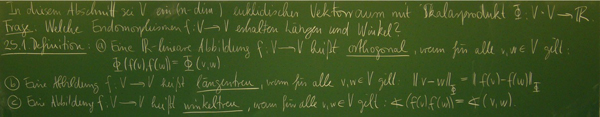 In diesem Abschnitt sei V ein (n-dim.) euklidischer Vektorraum mit Skalarprodukt Φ: V×V→ℝ.
Frage. Welche Endomorphismen f: V→V erhalten Längen und Winkel?
25.1 Definition: (a) Eine ℝ-lineare Abbildung f: V→V heißt orthogonal, wenn für alle v,w∈V gilt:
Φ(f(v),f(w)) = Φ(v,w)
(b) Eine Abbildung f: V→V heißt längentreu, wenn für alle v,w∈V gilt: ||v-w||_Φ = ||f(v)-f(w)||_Φ
(c) Eine Abbildung f: V→V heißt winkeltreu, wenn für alle v,w∈V gilt: ∢(f(v),f(w)) = ∢(v,w).